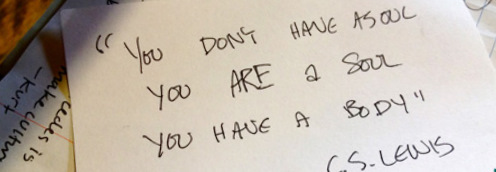 “YOU DON'T HAVE A SOUL
YOU ARE a SOUL
YOU HAVE A BODY"
C.S. LEWIS
make cultur
cedes is
-kurt